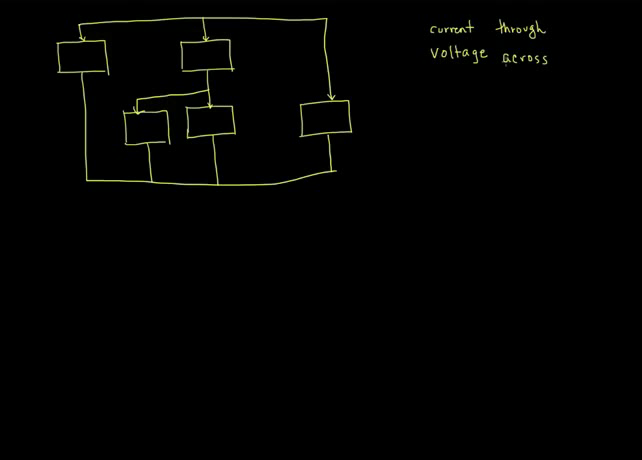 current through
Voltage across